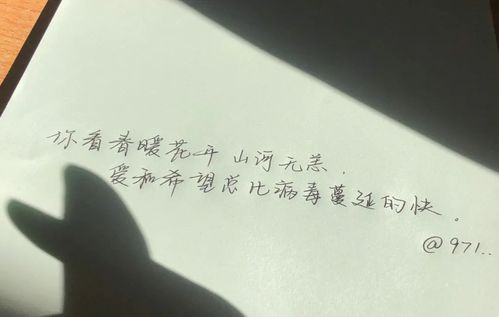 你看春暖花开 山河无恙.
爱和希望总比病毒蔓延的快.
@971..